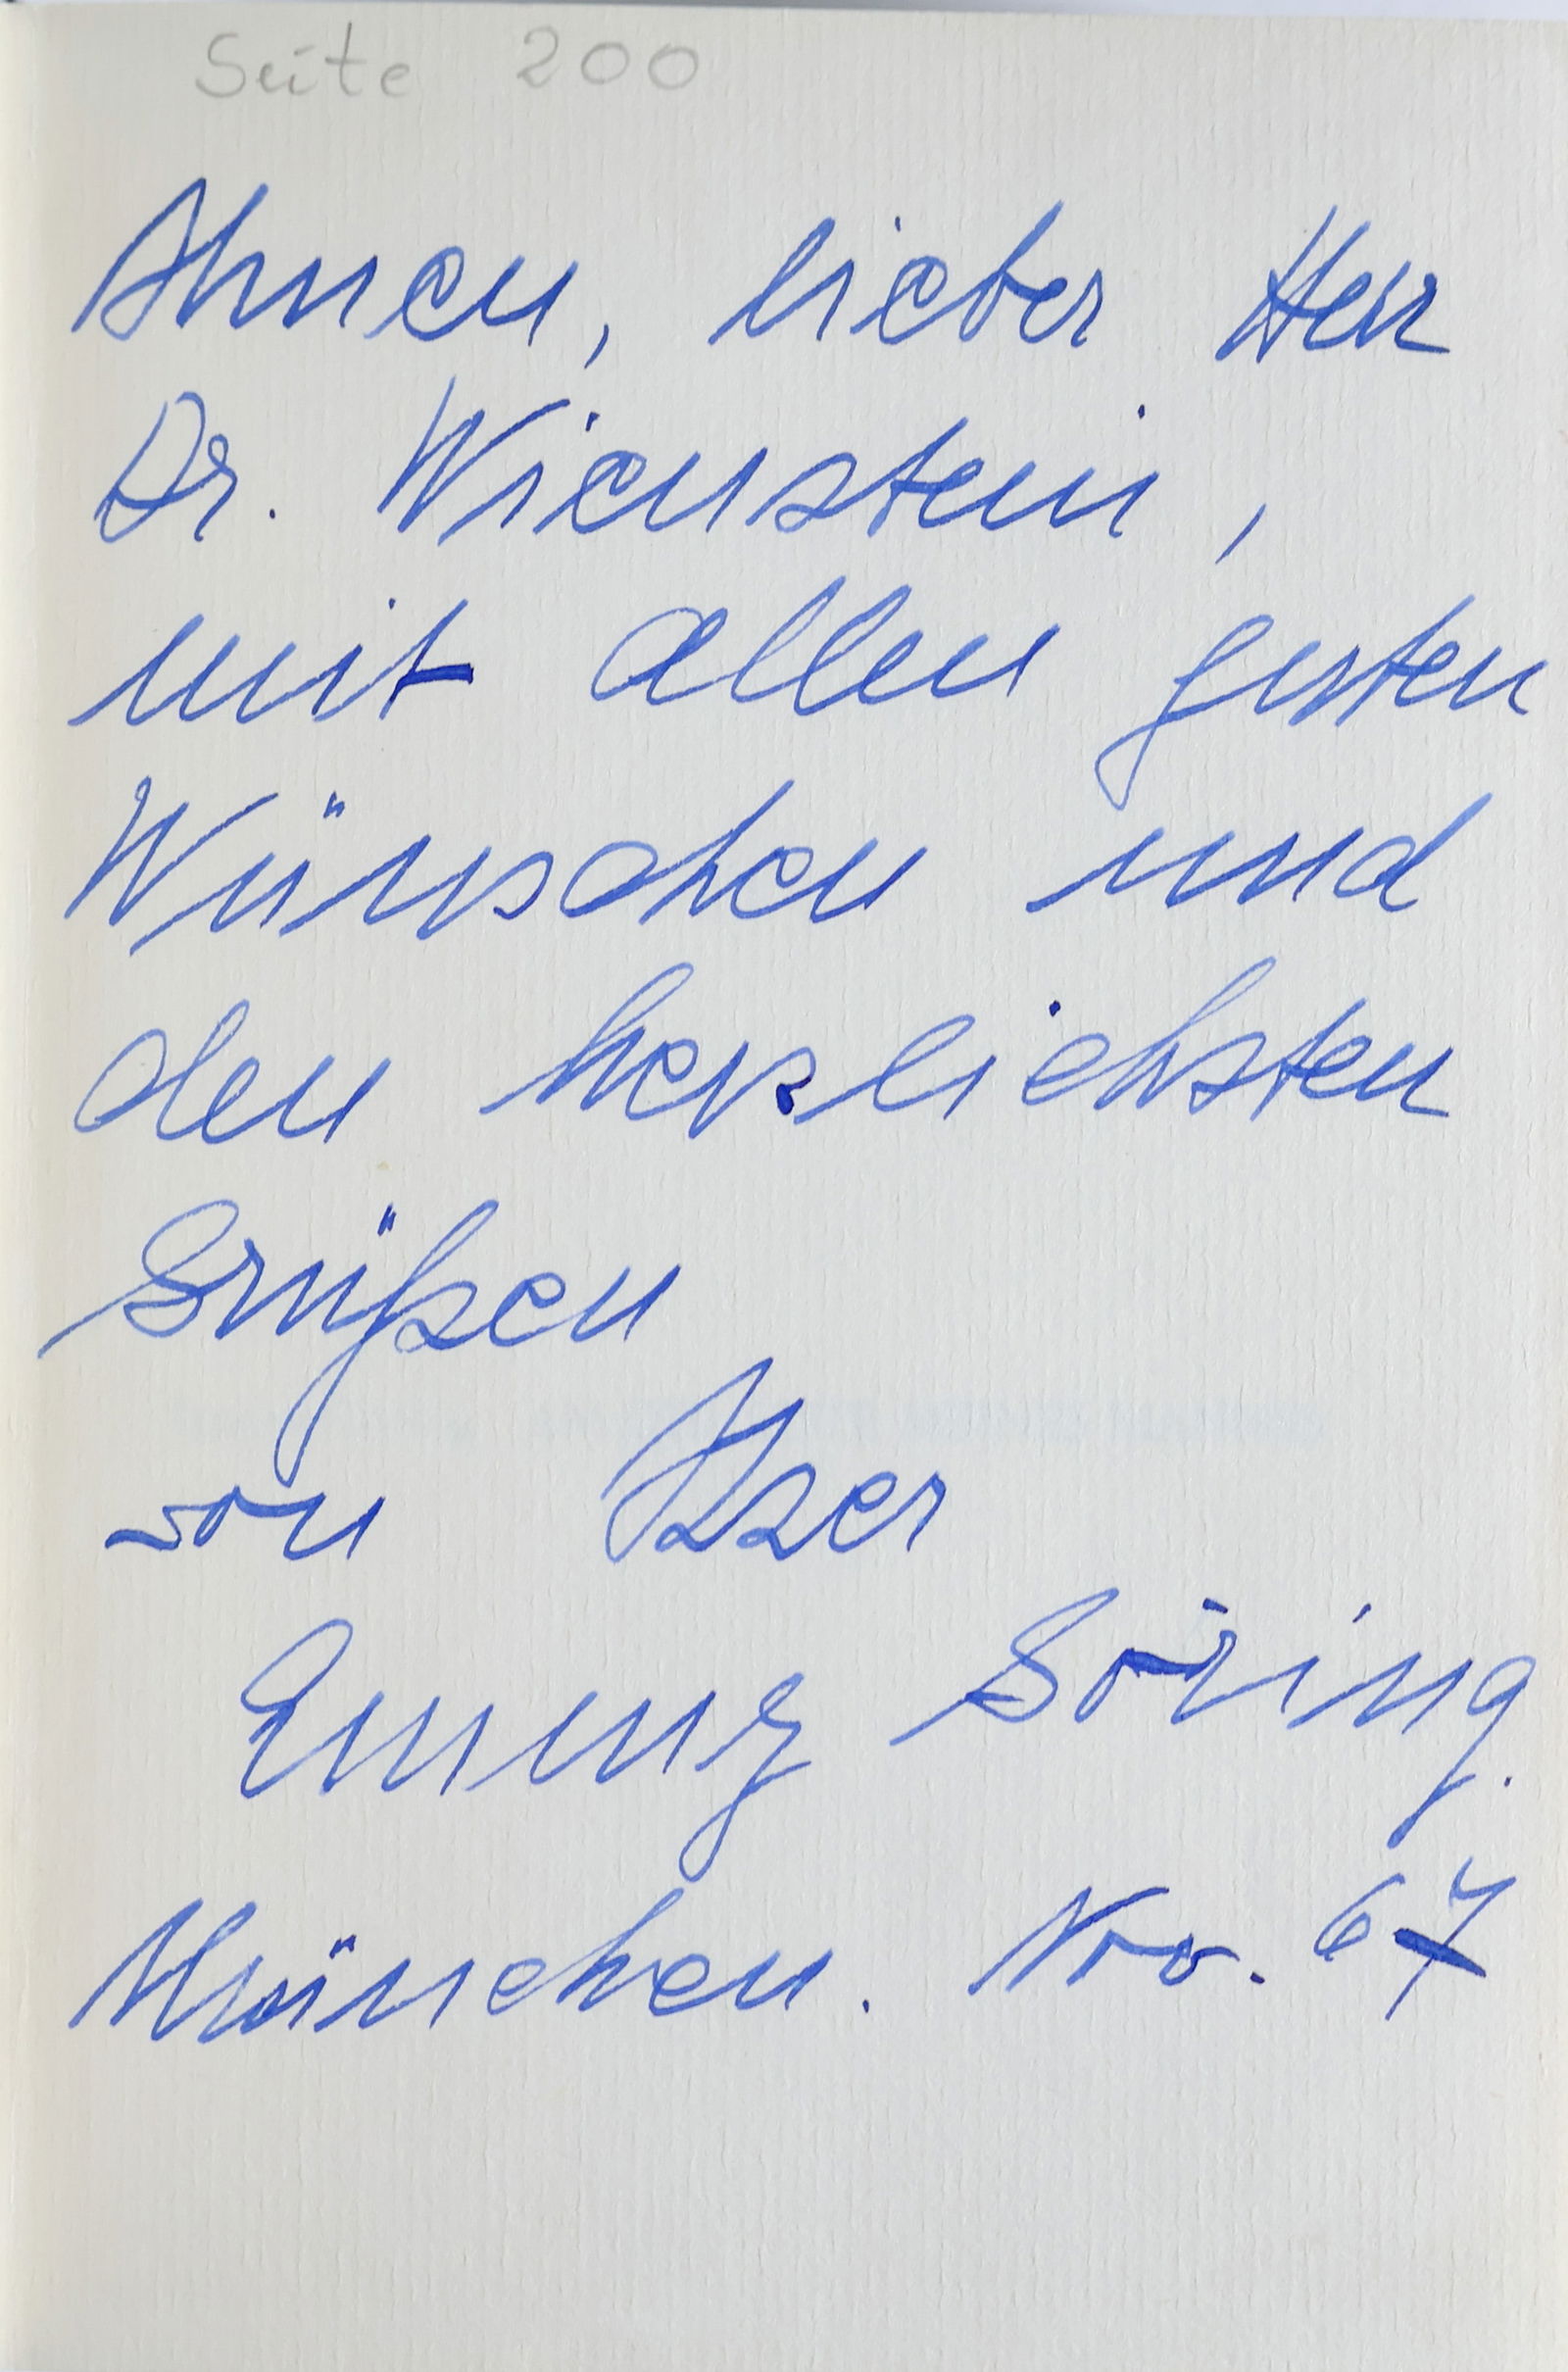 Seite 200
Ihnen, lieber Herr
Dr. Wienstein,
mit allen guten
Wünschen und
den herzlichsten
Grüßen
von Ihrer
Emmy Göring.
München. Nov. 67